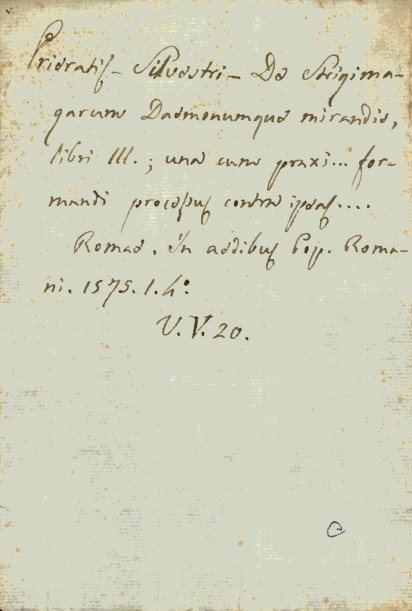 Prieratis - Silvestri - De Strigima-
garum Daemonumque mirandis,
libri III.; una cum praxi... for-
mandi processus contra ipsas....
Romae. In aedibus Pop. Roma-
ni. 1575. 1. 4º.
V. V. 20.